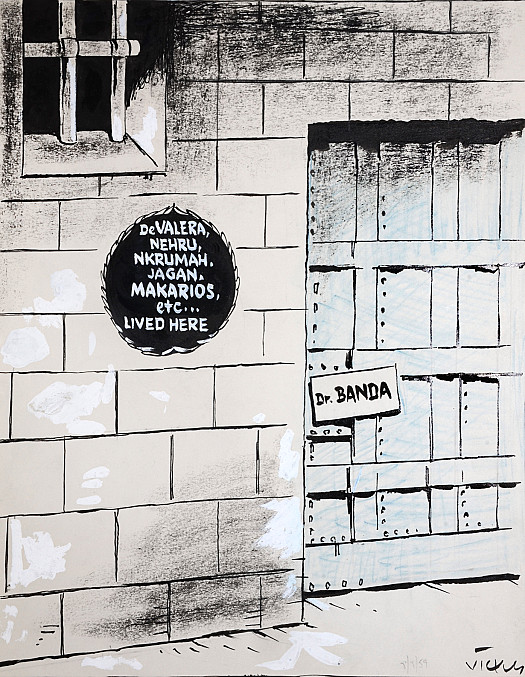 DeVALERA,
NEHRU,
NKRUMAH,
JAGAN,
MAKARIOS,
etc...
LIVED HERE
Dr. BANDA
VICKY